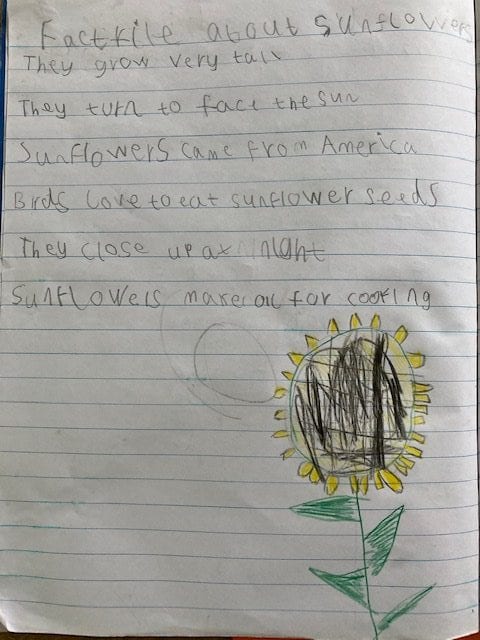 Factfile about sunflowers
They grow very tall
They turn to face the sun
Sunflowers came from America
Birds love to eat sunflower seeds
They close up at night
Sunflowers make oil for cooking